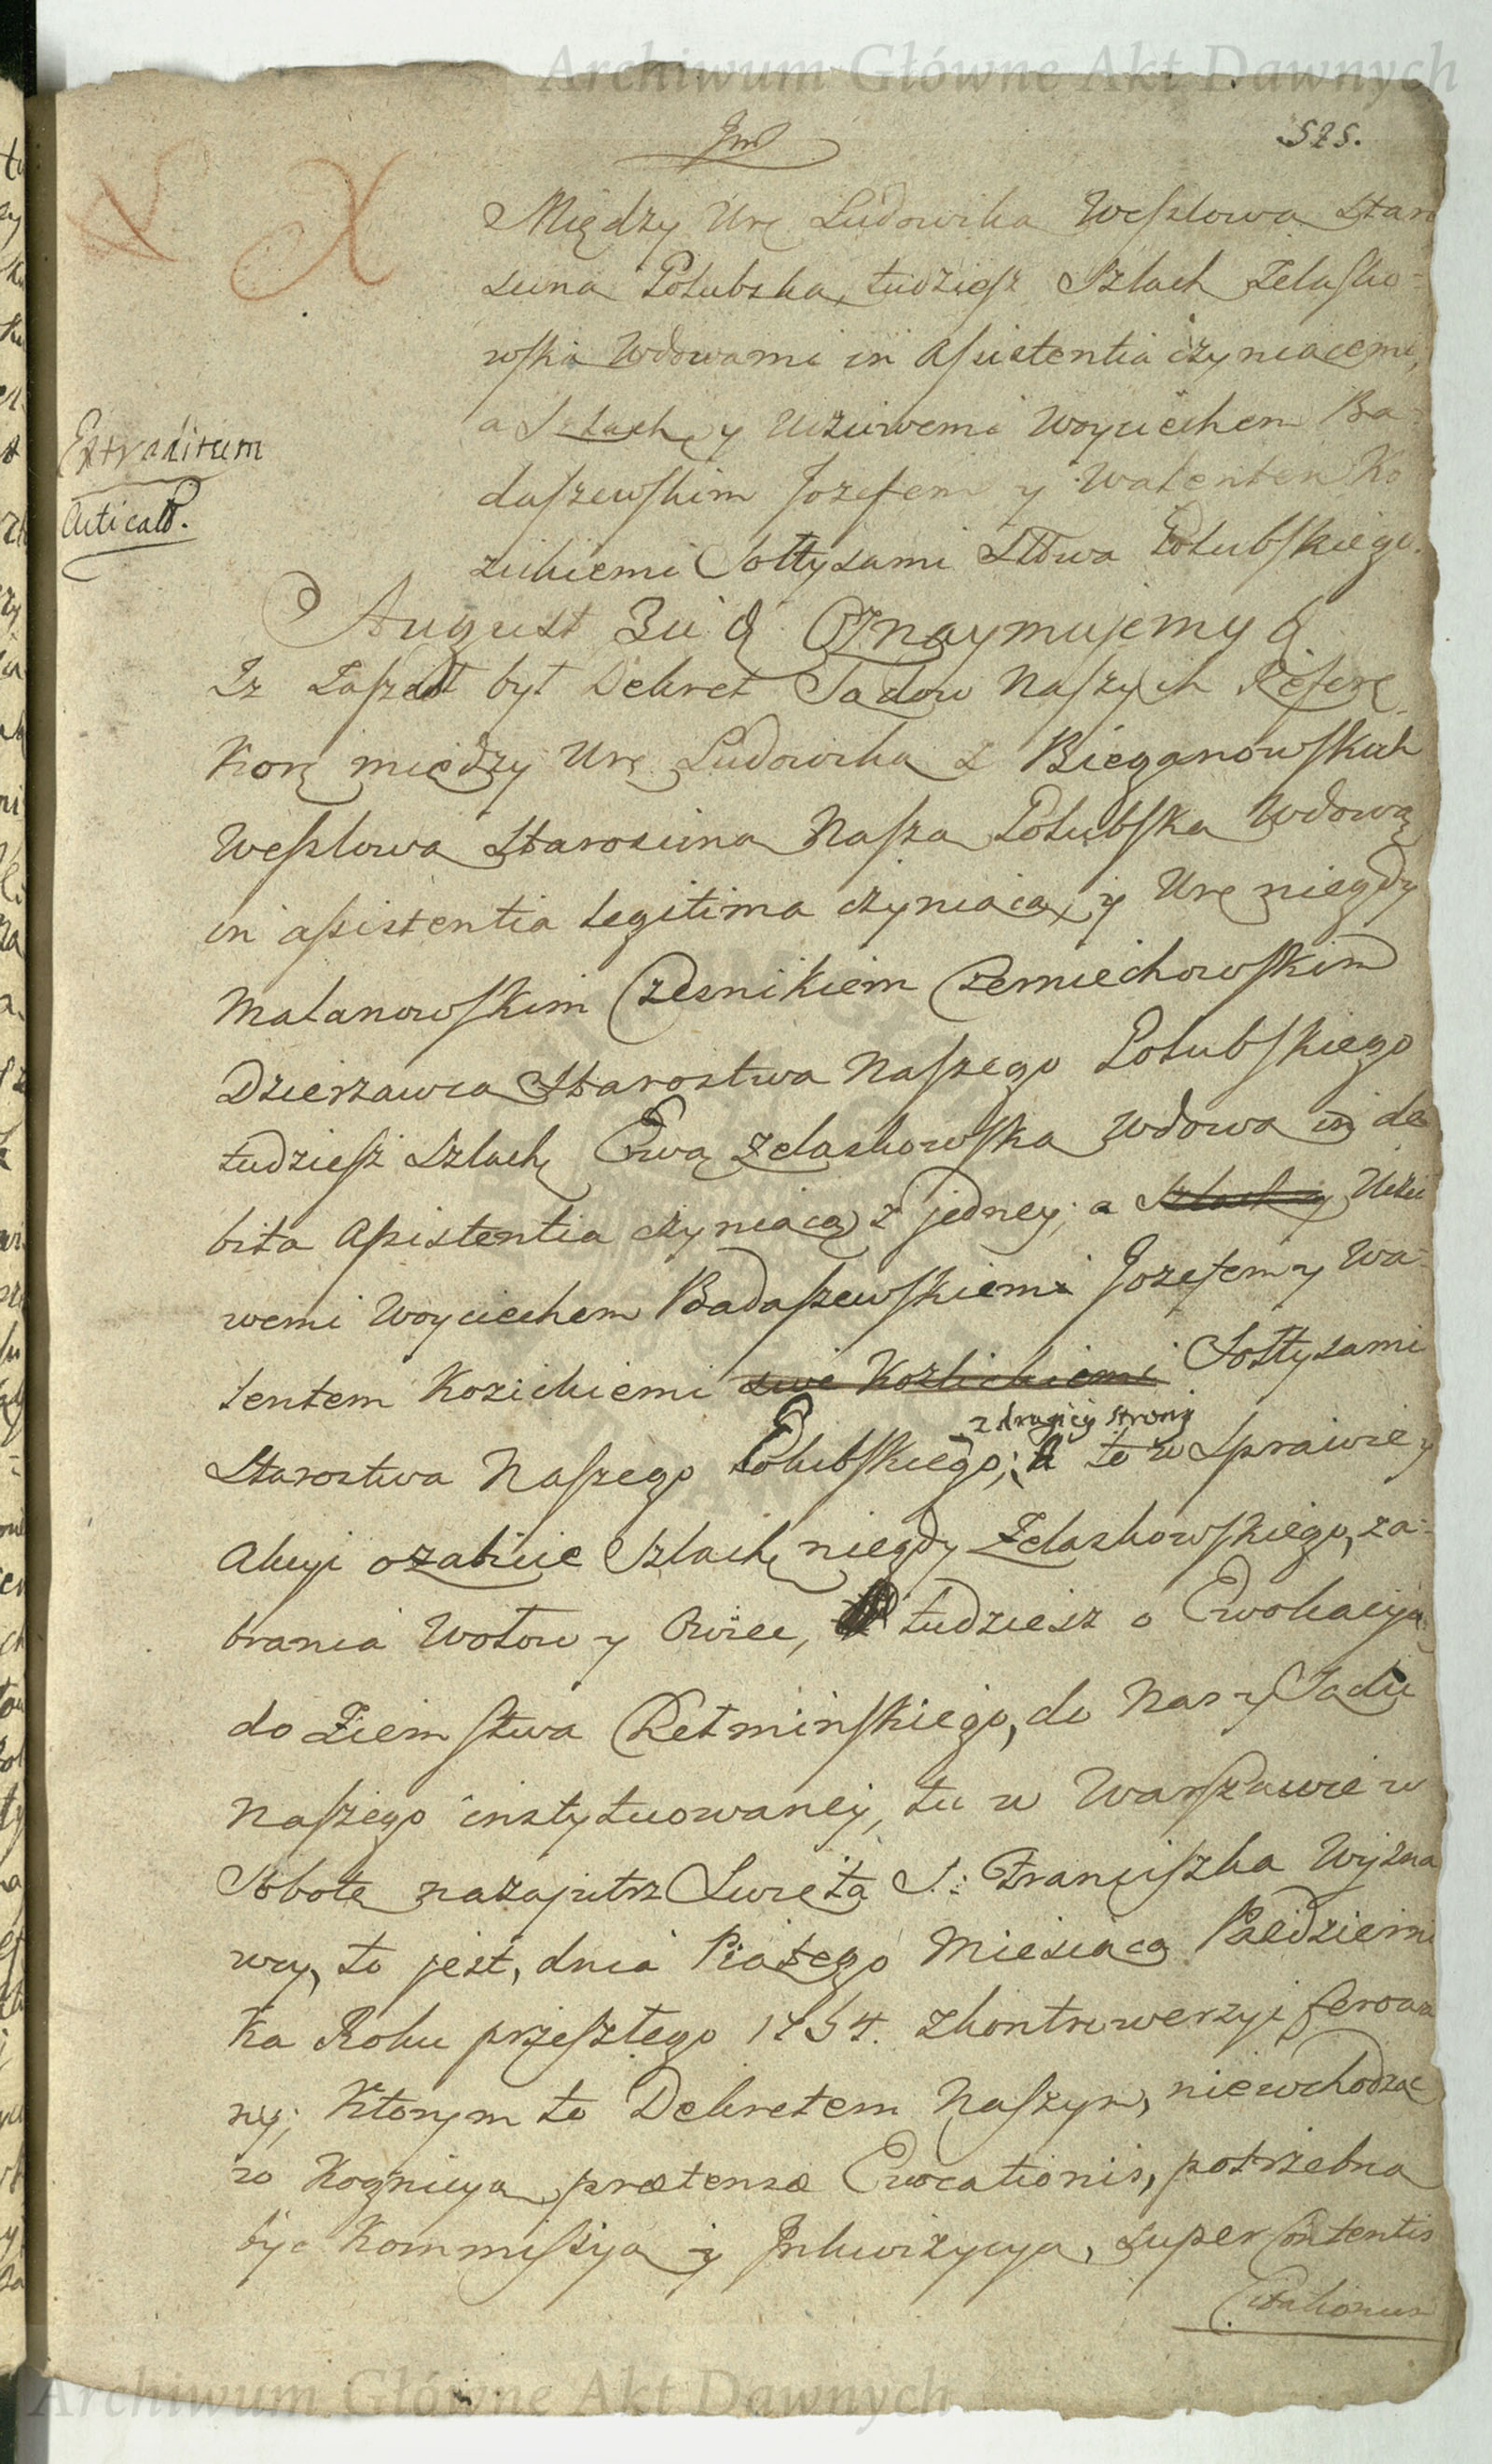 Archiwum Główne Akt Dawnych
575.
Między Urę Ludowiką Wesslową Staro
sciną Gołubską, tudziesz Szlach Zelasko-
wską Wdowami in assistentia czyniącemi,
a Szlachę y Uczciwemi Woyciechem Ba
daszewskim Jozefem y Walentem Ko
zickiemi Sołtysami Sttwa Gołubskiego.
Extraditum
Acticat.
August 3ci & Oznaymujemy &
Iż Zaszedł był Dekret Sądow Naszych Referę
Korę między Urę Ludowiką z Bieganowskich
Wesslową Starosciną Naszą Gołubską Wdową
in assistentia legitima czyniącą, y Urę niegdy
Małanowskim Czesnikiem Czerniechowskim
Dzierzawcą Starostwa Naszego Gołubskiego
tudziesz Szlachę Ewą Zelaskowską Wdową in de
bita Assistentia czyniącą z jedney; a Szlach y Uczci
wemi Woyciechem Badaszewskiemi Jozefem y Wa-
lentem Kozickiemi Sołtysami
z drugiey strony
Starostwa Naszego Gołubskiego; a to w Sprawie y
Akcyi o zabicie Szlachę niegdy Zelaskowskiego, za-
brania Wołow y Owiec, tudziesz o Ewokacyią
do Ziemstwa Chełminskiego, do Nas y Sądu
Naszego instytuowaney, tu w Warszawie w
Sobotę nazajutrz Swięta S: Franciszka Wyzna
wcy, to jest, dnia Piątego Miesiąca Pazdzierni
ka Roku przeszłego 1754. z kontrowersyi ferowa
ny; Ktorym to Dekretem Naszym, niewchodząc
w Kognicyą prætensæ Evocationis, potrzebną
być Kommissyą y Inkwizycyą, super Contentis
Citationum
Archiwum Główne Akt Dawnych